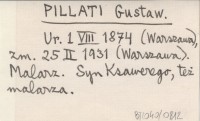 PILLATI Gustaw.
Ur. 1 VIII 1874 (Warszawa),
zm. 25 II 1931 (Warszawa).
Malarz. Syn Ksawerego, też
malarza.